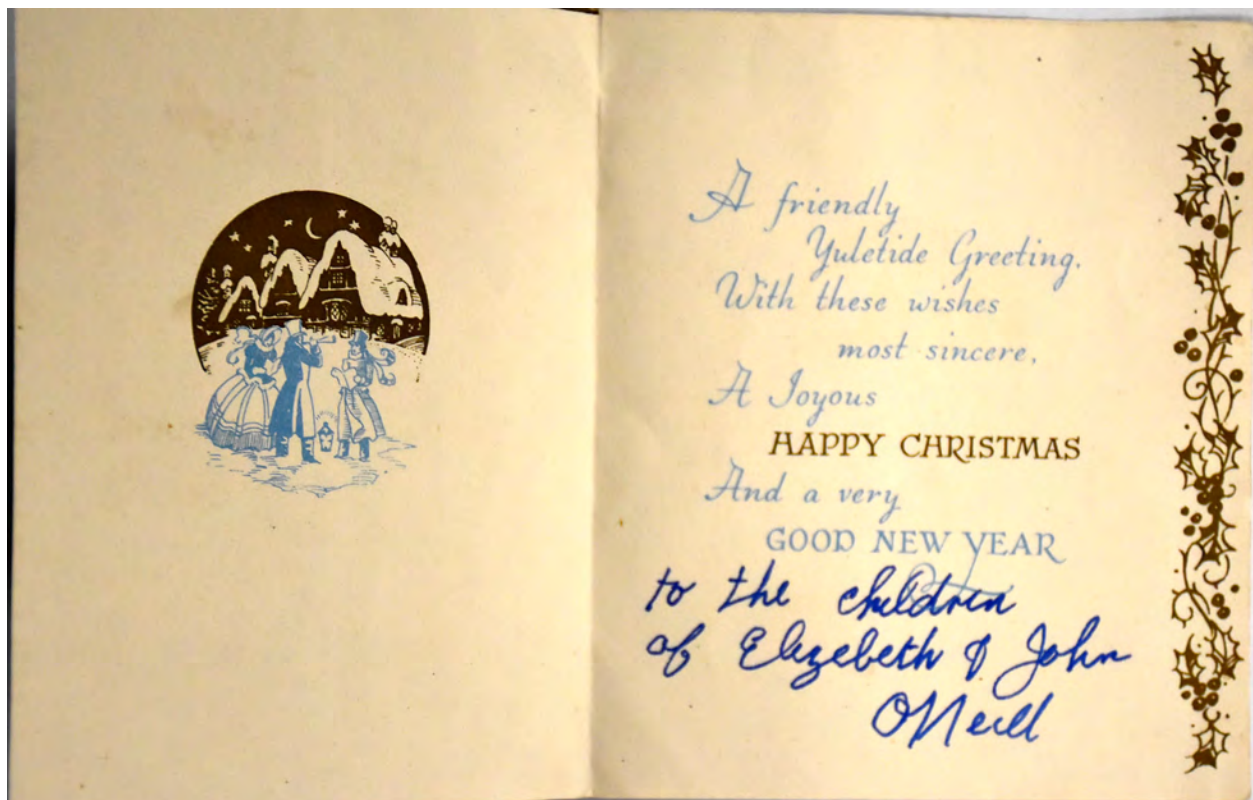 A friendly
Yuletide Greeting.
With these wishes
most sincere,
A Joyous
HAPPY CHRISTMAS
And a very
GOOD NEW YEAR
to the children
of Elizebeth & John
ONeill